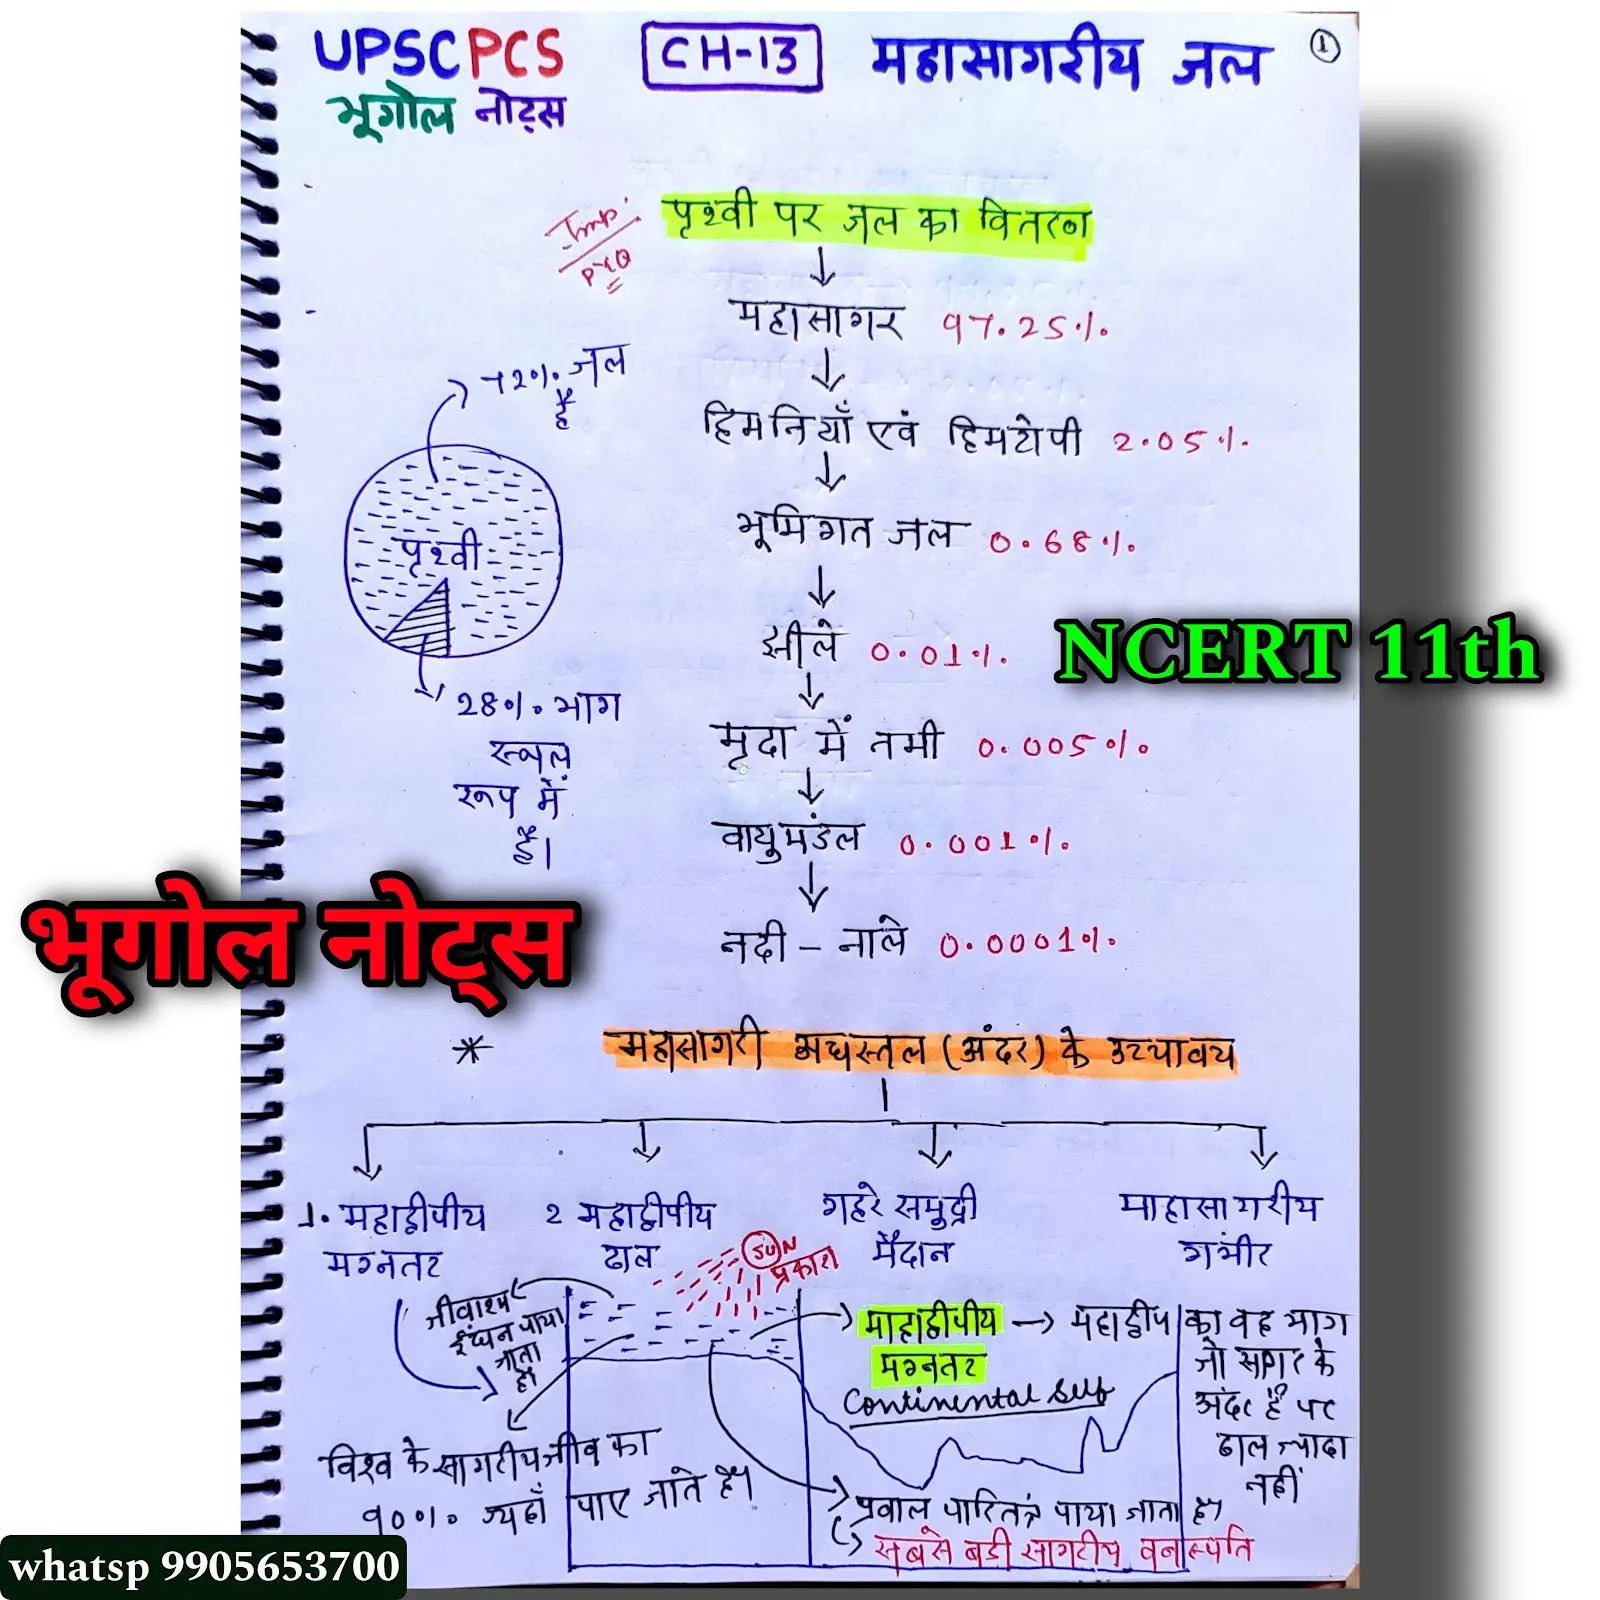 UPSC PCS
भूगोल नोट्स
CH-13
महासागरीय जल
1
Imp.
PYQ
पृथ्वी पर जल का वितरण
महासागर 97.25%
हिमनियाँ एवं हिमटोपी 2.05%
भूमिगत जल 0.68%
झीले 0.01%
मृदा में नमी 0.005%
वायुमंडल 0.001%
नदी - नाले 0.0001%
72% जल
है
पृथ्वी
28% भाग
स्थल
रूप में
है।
NCERT 11th
भूगोल नोट्स
* महासागरी अधस्तल (अंदर) के उच्चावच
1. महाद्वीपीय
मग्नतट
2 महाद्वीपीय
ढाल
गहरे समुद्री
मैदान
माहासागरीय
गंभीर
SUN
प्रकाश
जीवाश्म
ईंधन पाया
जाता
है।
माहाद्वीपीय → महाद्वीप का वह भाग
मग्नतट
जो सागर के
Continental Self
अंदर है पर
ढाल ज्यादा
नहीं
विश्व के सागरीय जीव का
90% यहाँ पाए जाते है।
प्रवाल पारितंत्र पाया जाता है।
सबसे बड़ी सागरीय वनस्पति
whatsp 9905653700